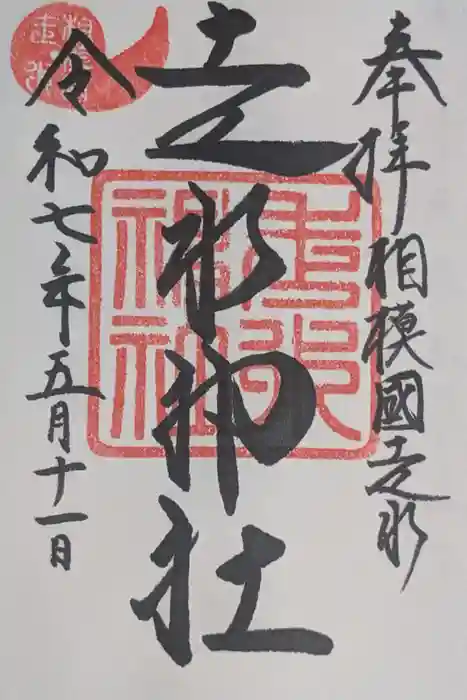 奉拝 相模國走水
走水神社
令和七年五月十一日
走水
神社